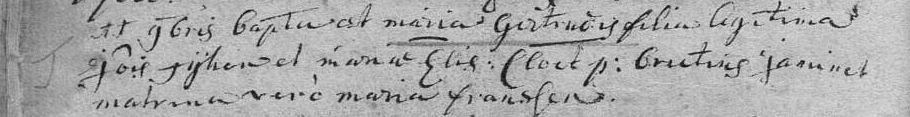 11 9bris bapta est maria Gertrudis filia legitima
jois gijsen et mariæ Elis: Cloet p: Brictius janinet
matrina vero maria franssen.